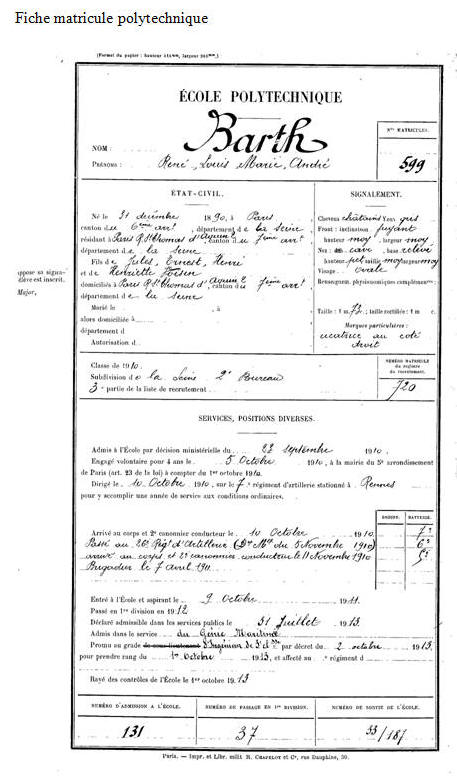 Fiche matricule polytechnique
(Format du papier : hauteur 315mm, largeur 205mm.)
ÉCOLE POLYTECHNIQUE
NOM : Barth
PRÉNOMS : René, Louis Marie, André
Nos MATRICULES.
599
ÉTAT-CIVIL.
Né le 31 décembre 1890, à Paris
canton du 6ème arrt, département de la Seine
résidant à Paris R. St Thomas d'Aquin 2, canton du 7ème arrt
département de la Seine
Fils de Jules, Ernest, Henri
et de Henriette
domiciliés à Paris R. St Thomas d'Aquin 2, canton du 7ème arrt
département de la Seine
Marié le , à
alors domiciliée à
département d
Autorisation d
SIGNALEMENT.
Cheveux châtains Yeux gris
Front : inclinaison fuyant
hauteur moy, largeur moy
Nez : dos cave, base relevé
hauteur pet saillie moy largeur moy
Visage ovale
Renseignem. physionomiques complémentres :
Taille : 1 m. 73 c., taille rectifiée : 1 m. c.
Marques particulières :
cicatrice au coté
droit
oppose sa signa-
élève est inscrit.
Major,
Classe de 1910.
Subdivision de la Seine 2e Bureau
3e partie de la liste de recrutement
NUMÉRO MATRICULE
du registre
du recrutement.
720
SERVICES, POSITIONS DIVERSES.
Admis à l'École par décision ministérielle du 23 septembre 1910.
Engagé volontaire pour 4 ans le 5 Octobre 1910, à la mairie du 5e arrondissement
de Paris (art. 23 de la loi) à compter du 1er octobre 1910.
Dirigé le 10 Octobre 1910, sur le 7e régiment d'artillerie stationné à Rennes
pour y accomplir une année de service aux conditions ordinaires.
BATTERIE.
Arrivé au corps et 2e canonnier conducteur le 10 Octobre 1910. 7e
Passé au 26e Régt d'Artillerie (Don Mlle du 5 Novembre 1910) 6e
arrivé au corps et 2e canonnier conducteur le 11 Novembre 1910
Brigadier le 7 avril 1911
Entré à l'École et aspirant le 9 Octobre 1911.
Passé en 1re division en 1912
Déclaré admissible dans les services publics le 31 Juillet 1913.
Admis dans le service du Génie Maritime
Promu au grade de sous-lieutenant d'Ingénieur de 3e cl par décret du 2 octobre 1913,
pour prendre rang du 1er Octobre 1913, et affecté au régiment d
Rayé des contrôles de l'École le 1er octobre 1913
NUMÉRO D'ADMISSION A L'ÉCOLE.
131
NUMÉRO DE PASSAGE EN 1re DIVISION.
37
NUMÉRO DE SORTIE DE L'ÉCOLE.
33/187
Paris. — Impr. et Libr. milit R. CHAPELOT et Ce, rue Dauphine, 30.